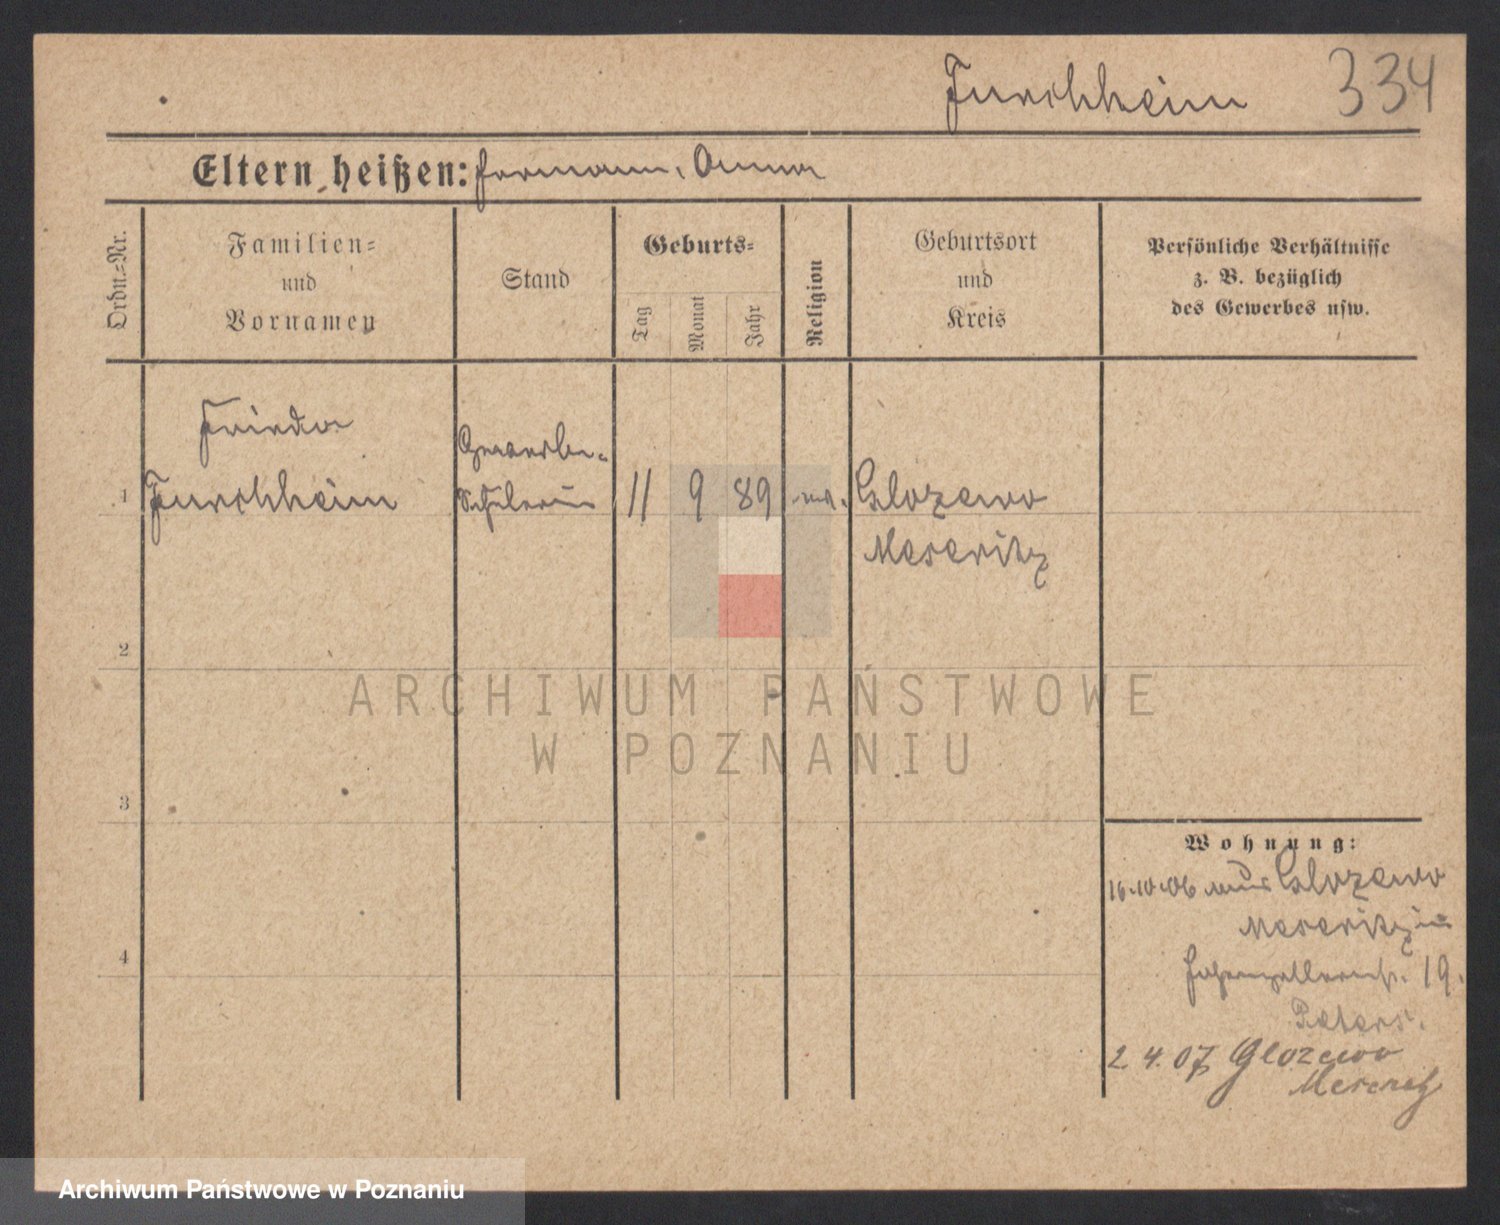 Furchheim 334
Eltern heißen: Hermann, Anna
Ordn.=Nr.
Familien=
und
Vornamen
Stand
Geburts=
Tag
Monat
Jahr
Religion
Geburtsort
und
Kreis
Persönliche Verhältnisse
z. B. bezüglich
des Gewerbes usw.
Frieda
Gewerbe-
1 Furchheim Schülerin 11 9 89 ev. Glozewo
Meseritz
2
3
4
Wohnung:
16.10.06 aus Glozewo
Meseritz in
Hohenzollernstr. 19.
Peters.
2 4. 07 Glozewo
Meseritz
ARCHIWUM PAŃSTWOWE
W POZNANIU
Archiwum Państwowe w Poznaniu